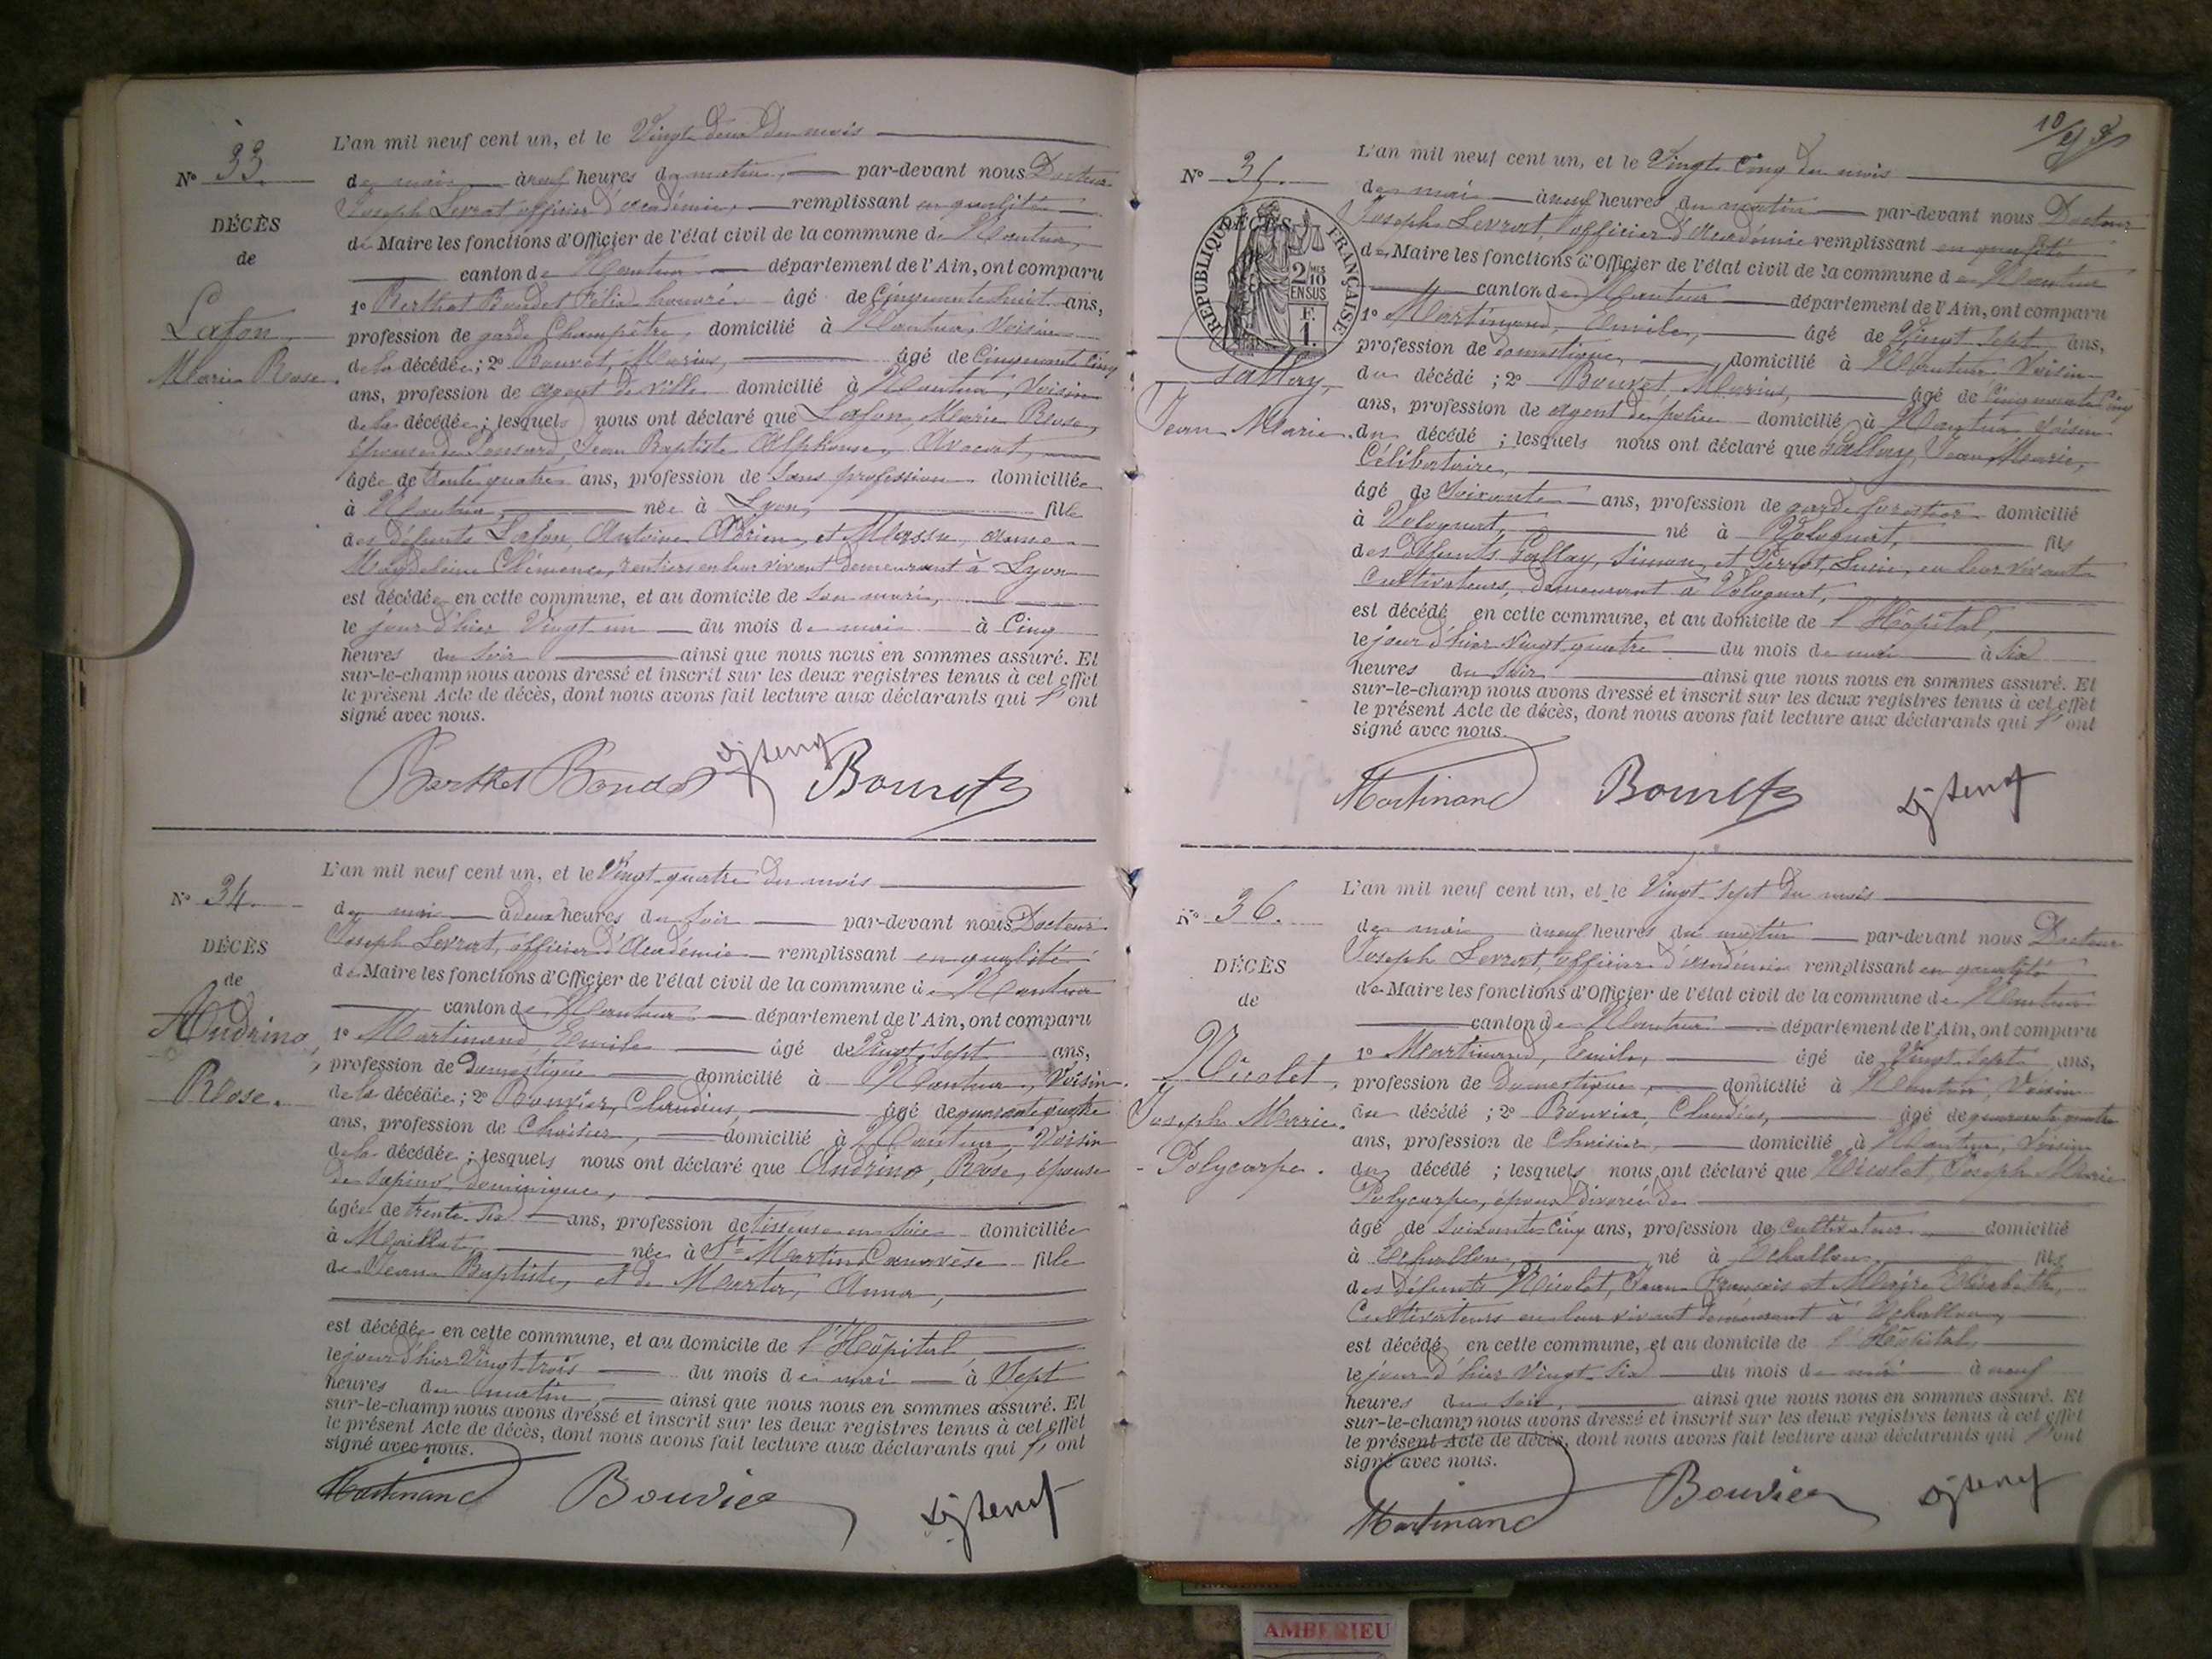 L'an mil neuf cent un, et le Vingt deux du mois
N° 33
de mai à neuf heures du matin, par-devant nous Docteur
Joseph Levrat officier d'académie, remplissant en qualité
DÉCÈS
de Maire les fonctions d'Officier de l'état civil de la commune de Nantua,
de
canton de Nantua département de l'Ain, ont comparu
1° Berthet Bondet Félix honoré âgé de Cinquante huit ans,
Lafon,
profession de garde Champêtre, domicilié à Nantua, Voisin
de la décédée ; 2° Bouvet, Marius, âgé de Cinquante Cinq
Marie Rose.
ans, profession de agent de ville domicilié à Nantua, Voisin
de la décédée ; lesquels nous ont déclaré que Lafon, Marie Rose,
épouse de Ponsard, Jean Baptiste Alphonse, Avocat,
âgée de trente quatre ans, profession de Sans profession domiciliée
à Nantua, née à Lyon, fille
des défunts Lafon, Antoine Adrien, et
Magdeleine Clémence, rentiers en leur vivant demeurant à Lyon
est décédée en cette commune, et au domicile de son mari,
le jour d'hier Vingt un du mois de mai à Cinq
heures du Soir ainsi que nous nous en sommes assuré. Et
sur-le-champ nous avons dressé et inscrit sur les deux registres tenus à cet effet
le présent Acte de décès, dont nous avons fait lecture aux déclarants qui l'ont
signé avec nous.
Berthet Bondet Bouvet
L'an mil neuf cent un, et le Vingt-quatre du mois
N° 34.
de mai à deux heures du Soir par-devant nous Docteur
Joseph Levrat, officier d'Académie remplissant en qualité
DÉCÈS
de Maire les fonctions d'Officier de l'état civil de la commune de Nantua
de
canton de Nantua département de l'Ain, ont comparu
Andrino,
1° Martinand Emile âgé de Vingt Sept ans,
profession de Domestique domicilié à Nantua, Voisin
Rose.
de la décédée ; 2° Bouvier, Claudius, âgé de quarante quatre
ans, profession de Chaisier, domicilié à Nantua, Voisin
de la décédée ; lesquels nous ont déclaré que Andrino, Rose, épouse
de Sapino Dominique,
âgée de trente Six ans, profession de tisseuse en Soie domiciliée
à Maillat, née à St Martin Canavèse fille
de Jean Baptiste, et de Anna,
est décédée en cette commune, et au domicile de l'Hôpital
le jour d'hier Vingt-trois du mois de mai à Sept
heures du matin, ainsi que nous nous en sommes assuré. Et
sur-le-champ nous avons dressé et inscrit sur les deux registres tenus à cet effet
le présent Acte de décès, dont nous avons fait lecture aux déclarants qui l'ont
signé avec nous.
Martinand Bouvier
L'an mil neuf cent un, et le Vingt-Cinq du mois
N° 35.
de mai à neuf heures du matin par-devant nous Docteur
Joseph Levrat, officier d'Académie remplissant en qualité
DÉCÈS
RÉPUBLIQUE FRANÇAISE
2/10 MES
EN SUS
F.
1.
de Maire les fonctions d'Officier de l'état civil de la commune de Nantua
canton de Nantua département de l'Ain, ont comparu
1° Martinand, Emile, âgé de Vingt Sept ans,
profession de domestique, domicilié à Nantua, Voisin
Gallay,
du décédé ; 2° Bouvet Marius, âgé de Cinquante Cinq
ans, profession de agent de police domicilié à Nantua Voisin
Jean Marie.
du décédé ; lesquels nous ont déclaré que Gallay, Jean Marie,
Célibataire,
âgé de Soixante ans, profession de garde forestier domicilié
à Volognat, né à Volognat, fils
des défunts Gallay, Simon, et Perrot, en leur vivant
Cultivateurs, demeurant à Volognat,
est décédé en cette commune, et au domicile de l'Hôpital,
le jour d'hier vingt quatre du mois de mai à Six
heures du Soir ainsi que nous nous en sommes assuré. Et
sur-le-champ nous avons dressé et inscrit sur les deux registres tenus à cet effet
le présent Acte de décès, dont nous avons fait lecture aux déclarants qui l'ont
signé avec nous.
Martinand Bouvet
L'an mil neuf cent un, et le Vingt-Sept du mois
N° 36.
de mai à neuf heures du matin par-devant nous Docteur
Joseph Levrat, officier d'académie remplissant en qualité
DÉCÈS
de Maire les fonctions d'Officier de l'état civil de la commune de Nantua
de
canton de Nantua département de l'Ain, ont comparu
Nicolet,
1° Martinand, Emile, âgé de Vingt Sept ans,
profession de Domestique, domicilié à Nantua, Voisin
Joseph Marie
du décédé ; 2° Bouvier, Claudius, âgé de quarante quatre
ans, profession de Chaisier, domicilié à Nantua, Voisin
Polycarpe.
du décédé ; lesquels nous ont déclaré que Nicolet, Joseph Marie
Polycarpe, époux divorcé de
âgé de Soixante Cinq ans, profession de Cultivateur domicilié
à Echallon, né à Echallon, fils
des défunts Nicolet, Jean François et Elisabeth,
Cultivateurs en leur vivant demeurant à Echallon,
est décédé en cette commune, et au domicile de l'Hôpital
le jour d'hier Vingt-Six du mois de mai à neuf
heures du Soir, ainsi que nous nous en sommes assuré. Et
sur-le-champ nous avons dressé et inscrit sur les deux registres tenus à cet effet
le présent Acte de décès, dont nous avons fait lecture aux déclarants qui l'ont
signé avec nous.
Martinand Bouvier
AMBERIEU